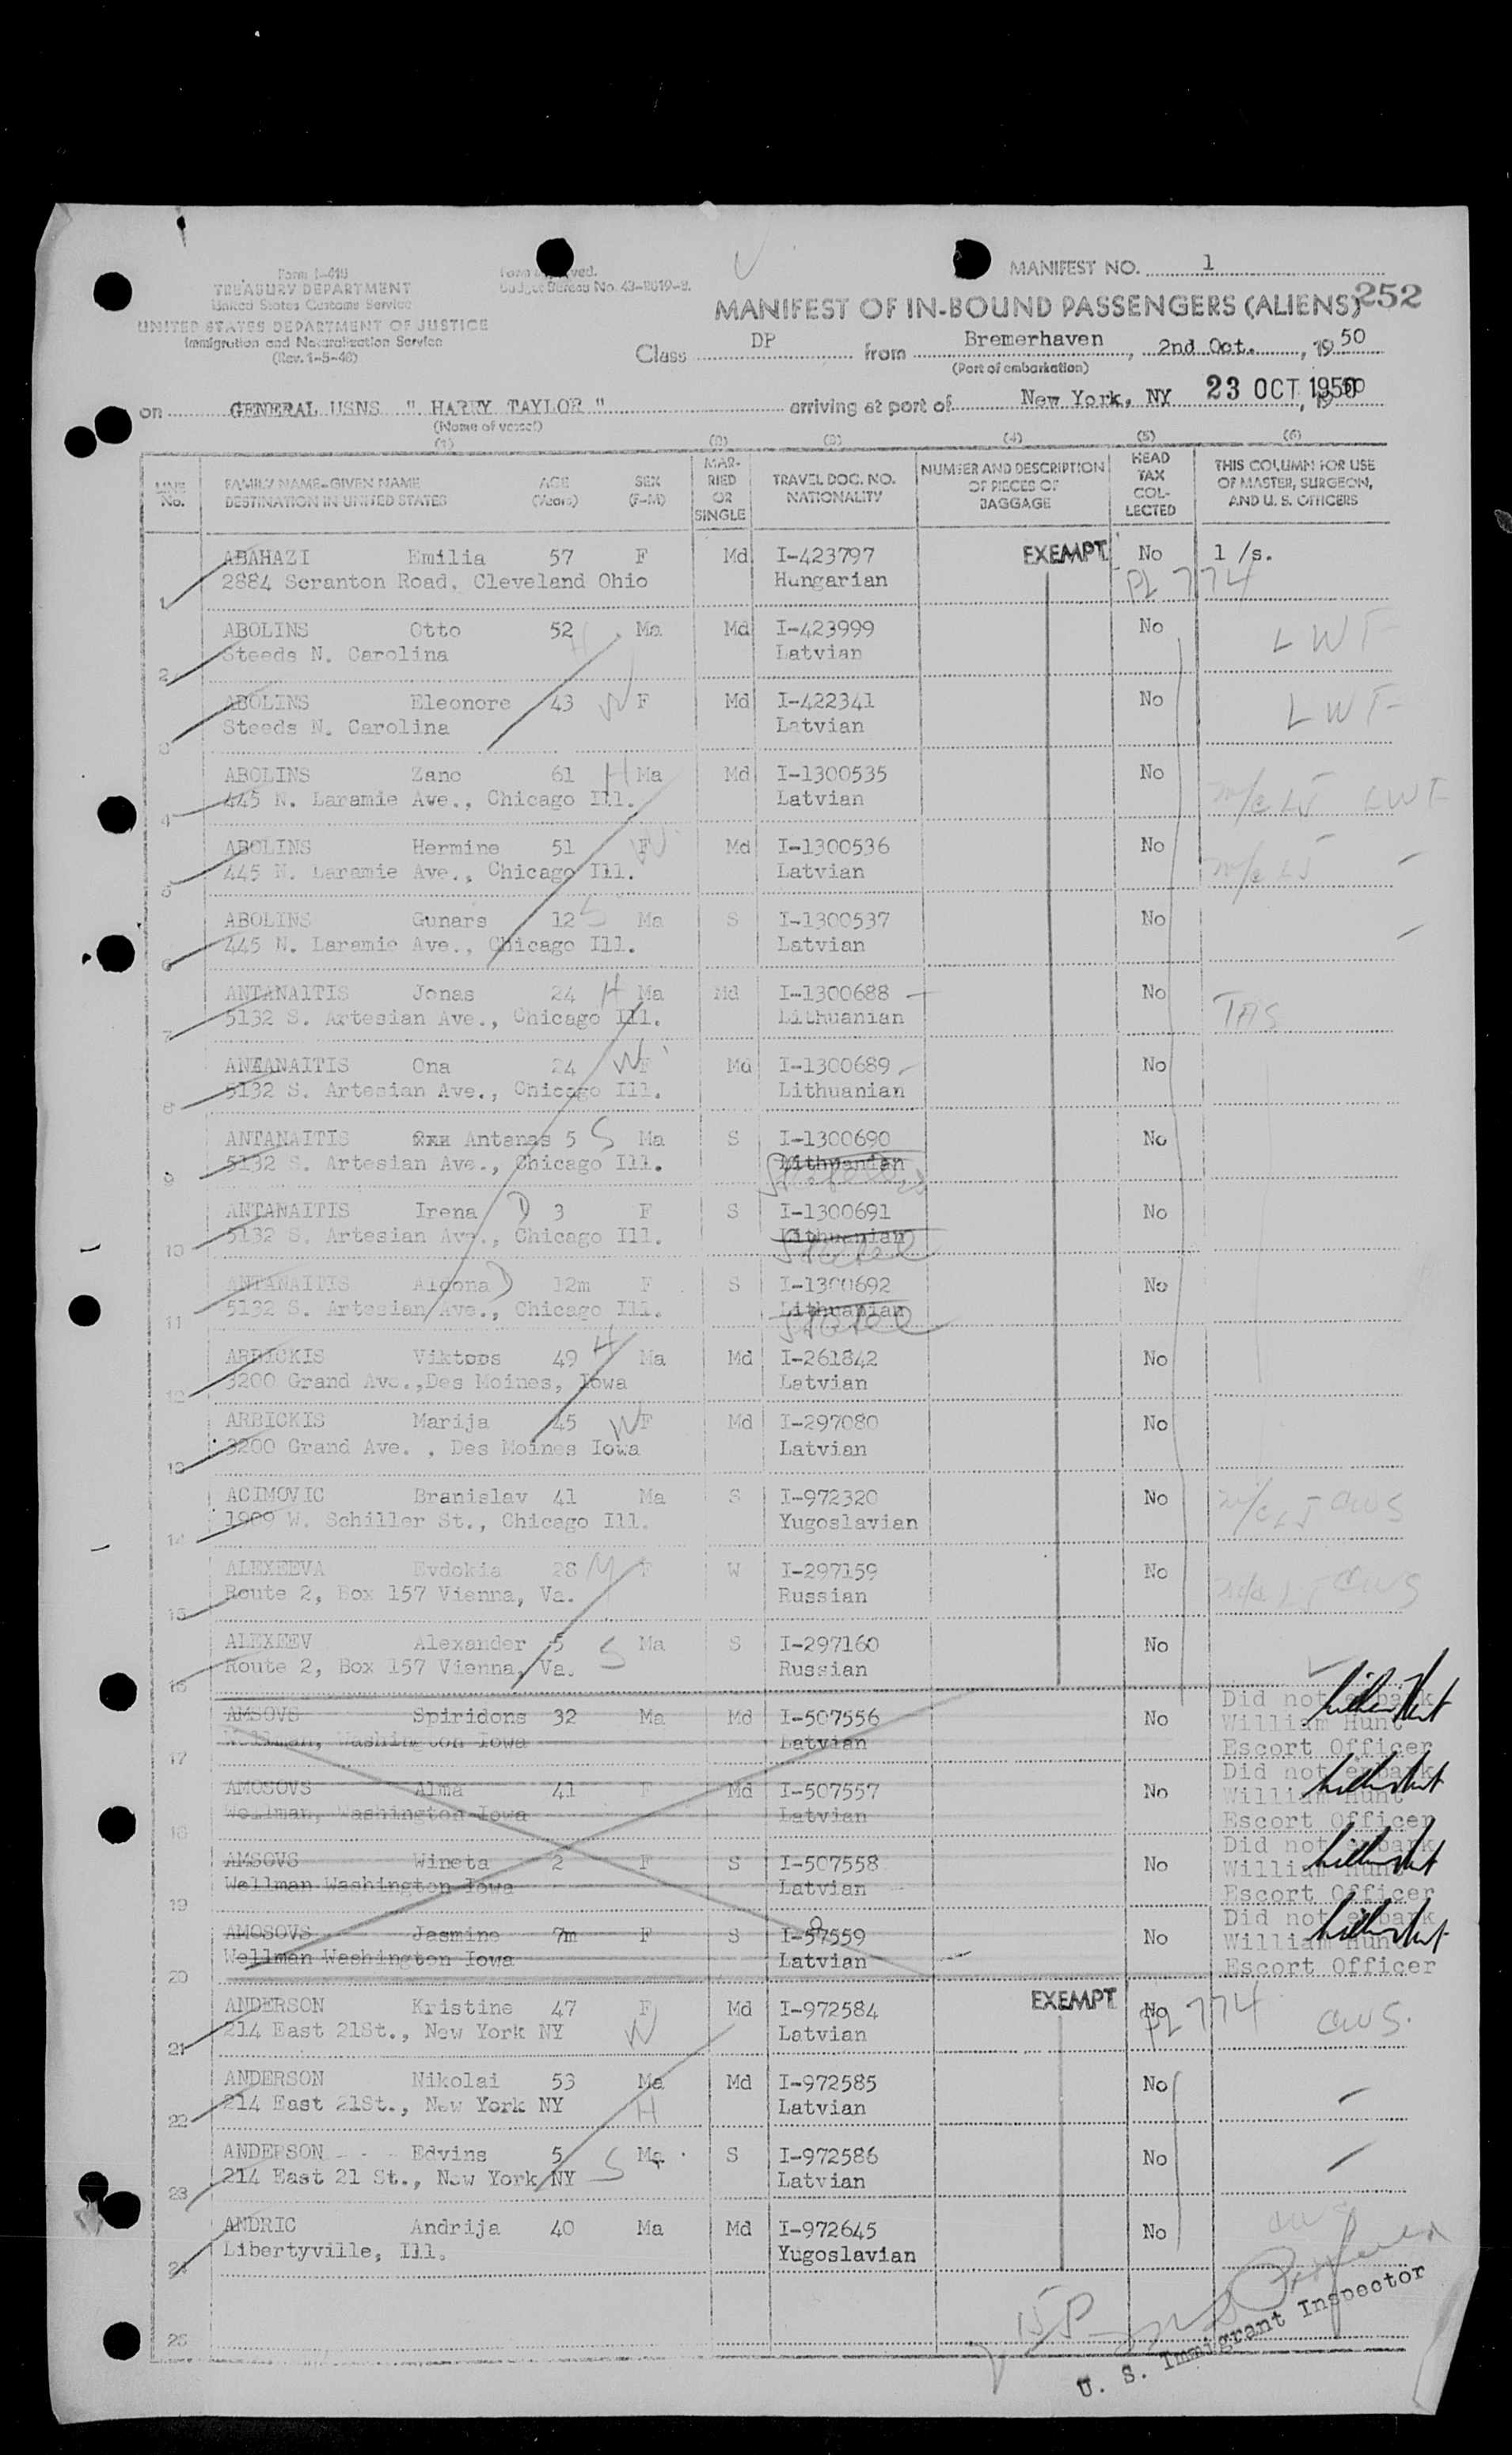 Form I-418
TREASURY DEPARTMENT
United States Customs Service
UNITED STATES DEPARTMENT OF JUSTICE
Immigration and Naturalization Service
(Rev. 1-5-48)
Budget Bureau No.
MANIFEST NO. 1
MANIFEST OF IN-BOUND PASSENGERS (ALIENS) 252
Class DP from Bremerhaven, 2nd Oct., 1950
(Port of embarkation)
on GENERAL USNS " HARRY TAYLOR " arriving at port of New York, NY 23 OCT 1950
(Name of vessel)
(1) (2) (3) (4) (5) (6)
LINE No. FAMILY NAME-GIVEN NAME DESTINATION IN UNITED STATES AGE (Years) SEX (F-M) MARRIED OR SINGLE TRAVEL DOC. NO. NATIONALITY NUMBER AND DESCRIPTION OF PIECES OF BAGGAGE HEAD TAX COLLECTED THIS COLUMN FOR USE OF MASTER, SURGEON, AND U. S. OFFICERS
1 ABAHAZI Emilia 57 F Md I-423797 EXEMPT No 1 /s.
2884 Scranton Road, Cleveland Ohio Hungarian PL 774
2 ABOLINS Otto 52 H Ma Md I-423999 No LWF
Steeds N. Carolina Latvian
3 ABOLINS Eleonore 43 W F Md I-422341 No LWF
Steeds N. Carolina Latvian
4 ABOLINS Zano 61 H Ma Md I-1300535 No
445 N. Laramie Ave., Chicago Ill. Latvian LWF
5 ABOLINS Hermine 51 F W Md I-1300536 No
445 N. Laramie Ave., Chicago Ill. Latvian
6 ABOLINS Gunars 12 S Ma S I-1300537 No
445 N. Laramie Ave., Chicago Ill. Latvian
7 ANTANAITIS Jonas 24 H Ma Md I-1300688 No
5132 S. Artesian Ave., Chicago Ill. Lithuanian
8 ANTANAITIS Ona 24 W F Md I-1300689 No
5132 S. Artesian Ave., Chicago Ill. Lithuanian
9 ANTANAITIS Antanas 5 S Ma S I-1300690 No
5132 S. Artesian Ave., Chicago Ill. Lithuanian
10 ANTANAITIS Irena D 3 F S I-1300691 No
5132 S. Artesian Ave., Chicago Ill. Lithuanian
11 ANTANAITIS Aldona D 12m F S I-1300692 No
5132 S. Artesian Ave., Chicago Ill. Lithuanian
12 ARBICKIS Viktors 49 H Ma Md I-261842 No
3200 Grand Ave.,Des Moines, Iowa Latvian
13 ARBICKIS Marija 45 W F Md I-297080 No
3200 Grand Ave. , Des Moines Iowa Latvian
14 ACIMOVIC Branislav 41 Ma S I-972320 No CWS
1909 W. Schiller St., Chicago Ill. Yugoslavian
15 ALEXEEVA Evdokia 28 M F W I-297159 No CWS
Route 2, Box 157 Vienna, Va. Russian
16 ALEXEEV Alexander 5 S Ma S I-297160 No
Route 2, Box 157 Vienna, Va. Russian
17 AMSOVS Spiridons 32 Ma Md I-507556 No Did not embark
Wellman, Washington Iowa Latvian William Hunt
Escort Officer
18 AMOSOVS Alma 41 F Md I-507557 No Did not embark
Wellman, Washington Iowa Latvian William Hunt
Escort Officer
19 AMSOVS Wineta 2 F S I-507558 No Did not embark
Wellman Washington Iowa Latvian William Hunt
Escort Officer
20 AMOSOVS Jasmine 7m F S I-507559 No Did not embark
Wellman Washington Iowa Latvian William Hunt
Escort Officer
21 ANDERSON Kristine 47 F W Md I-972584 EXEMPT No PL 774 CWS.
214 East 21St., New York NY Latvian
22 ANDERSON Nikolai 53 Ma H Md I-972585 No
214 East 21St., New York NY Latvian
23 ANDERSON Edvins 5 S Ma S I-972586 No
214 East 21 St., New York NY Latvian
24 ANDRIC Andrija 40 Ma Md I-972645 No
Libertyville, Ill. Yugoslavian CWS
25
U. S. Immigrant Inspector